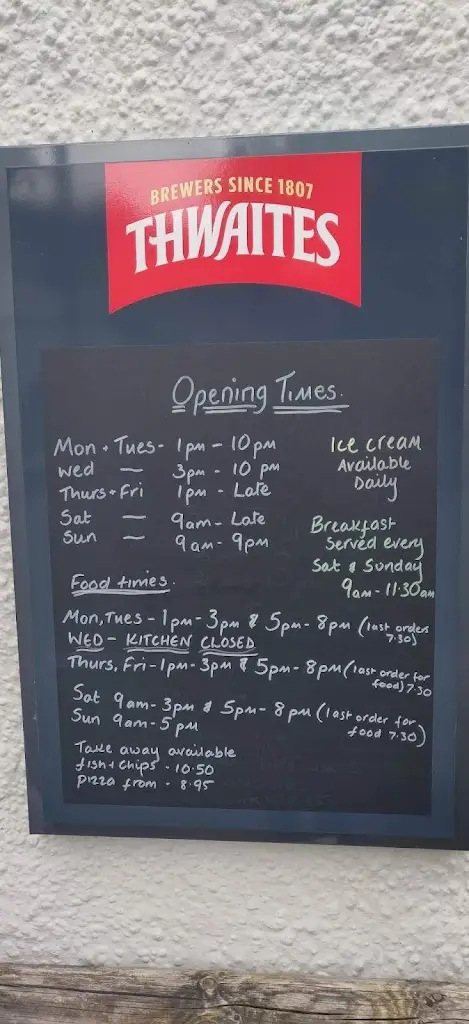 BREWERS SINCE 1807
THWAITES
Opening Times.
Mon + Tues - 1pm - 10pm
Wed - 3pm - 10 pm
Thurs + Fri 1pm - Late
Sat - 9am - Late
Sun - 9am - 9pm
Ice cream
Available
Daily
Breakfast
Served every
Sat & Sunday
9am - 11:30am
Food times.
Mon, Tues - 1pm - 3pm & 5pm - 8pm (last orders
7.30)
WED - KITCHEN CLOSED
Thurs, Fri - 1pm - 3pm & 5pm - 8pm (last order for
food) 7.30
Sat 9am - 3pm & 5pm - 8pm (last order for
food 7.30)
Sun 9am - 5pm
Take away available
fish + chips - 10.50
pizza from - 8.95